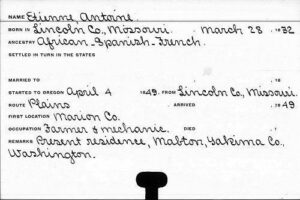 NAME Etienne, Antoine.
BORN IN Lincoln Co., Missouri. March 28 1832
ANCESTRY African-Spanish-French.
SETTLED IN TURN IN THE STATES
MARRIED TO 1
STARTED TO OREGON April 4 1849. FROM Lincoln Co., Missouri.
ROUTE Plains ARRIVED 1849
FIRST LOCATION Marion Co.
OCCUPATION Farmer & mechanic. DIED 1
REMARKS Present residence, Mabton, Yakima Co.,
Washington.